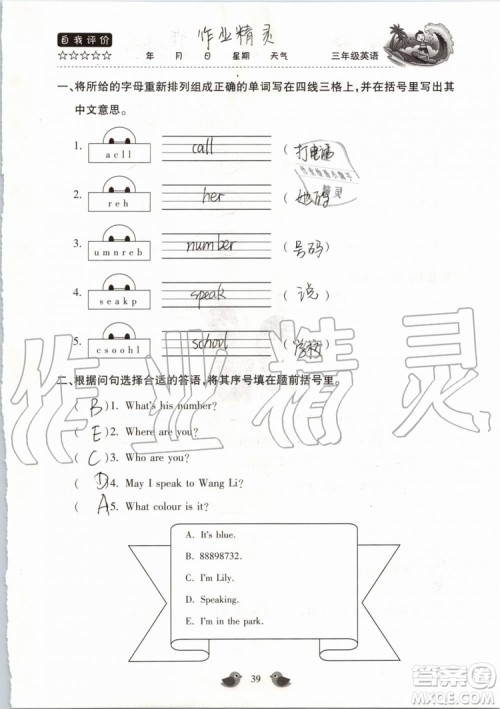 自我评价
作业精灵
☆☆☆☆☆ 年 月 日 星期 天气 三年级英语
一、将所给的字母重新排列组成正确的单词写在四线三格上,并在括号里写出其
中文意思。
1. acll call (打电话)
2. reh her (她的)
3. umnreb number (号码)
4. seakp speak (说)
5. csoohl school (学校)
二、根据问句选择合适的答语,将其序号填在题前括号里。
( B )1. What's his number?
( E )2. Where are you?
( C )3. Who are you?
( D )4. May I speak to Wang Li?
( A )5. What colour is it?
A. It's blue.
B. 88898732.
C. I'm Lily.
D. Speaking.
E. I'm in the park.
39
作业精灵
答案圈
MXQE.COM